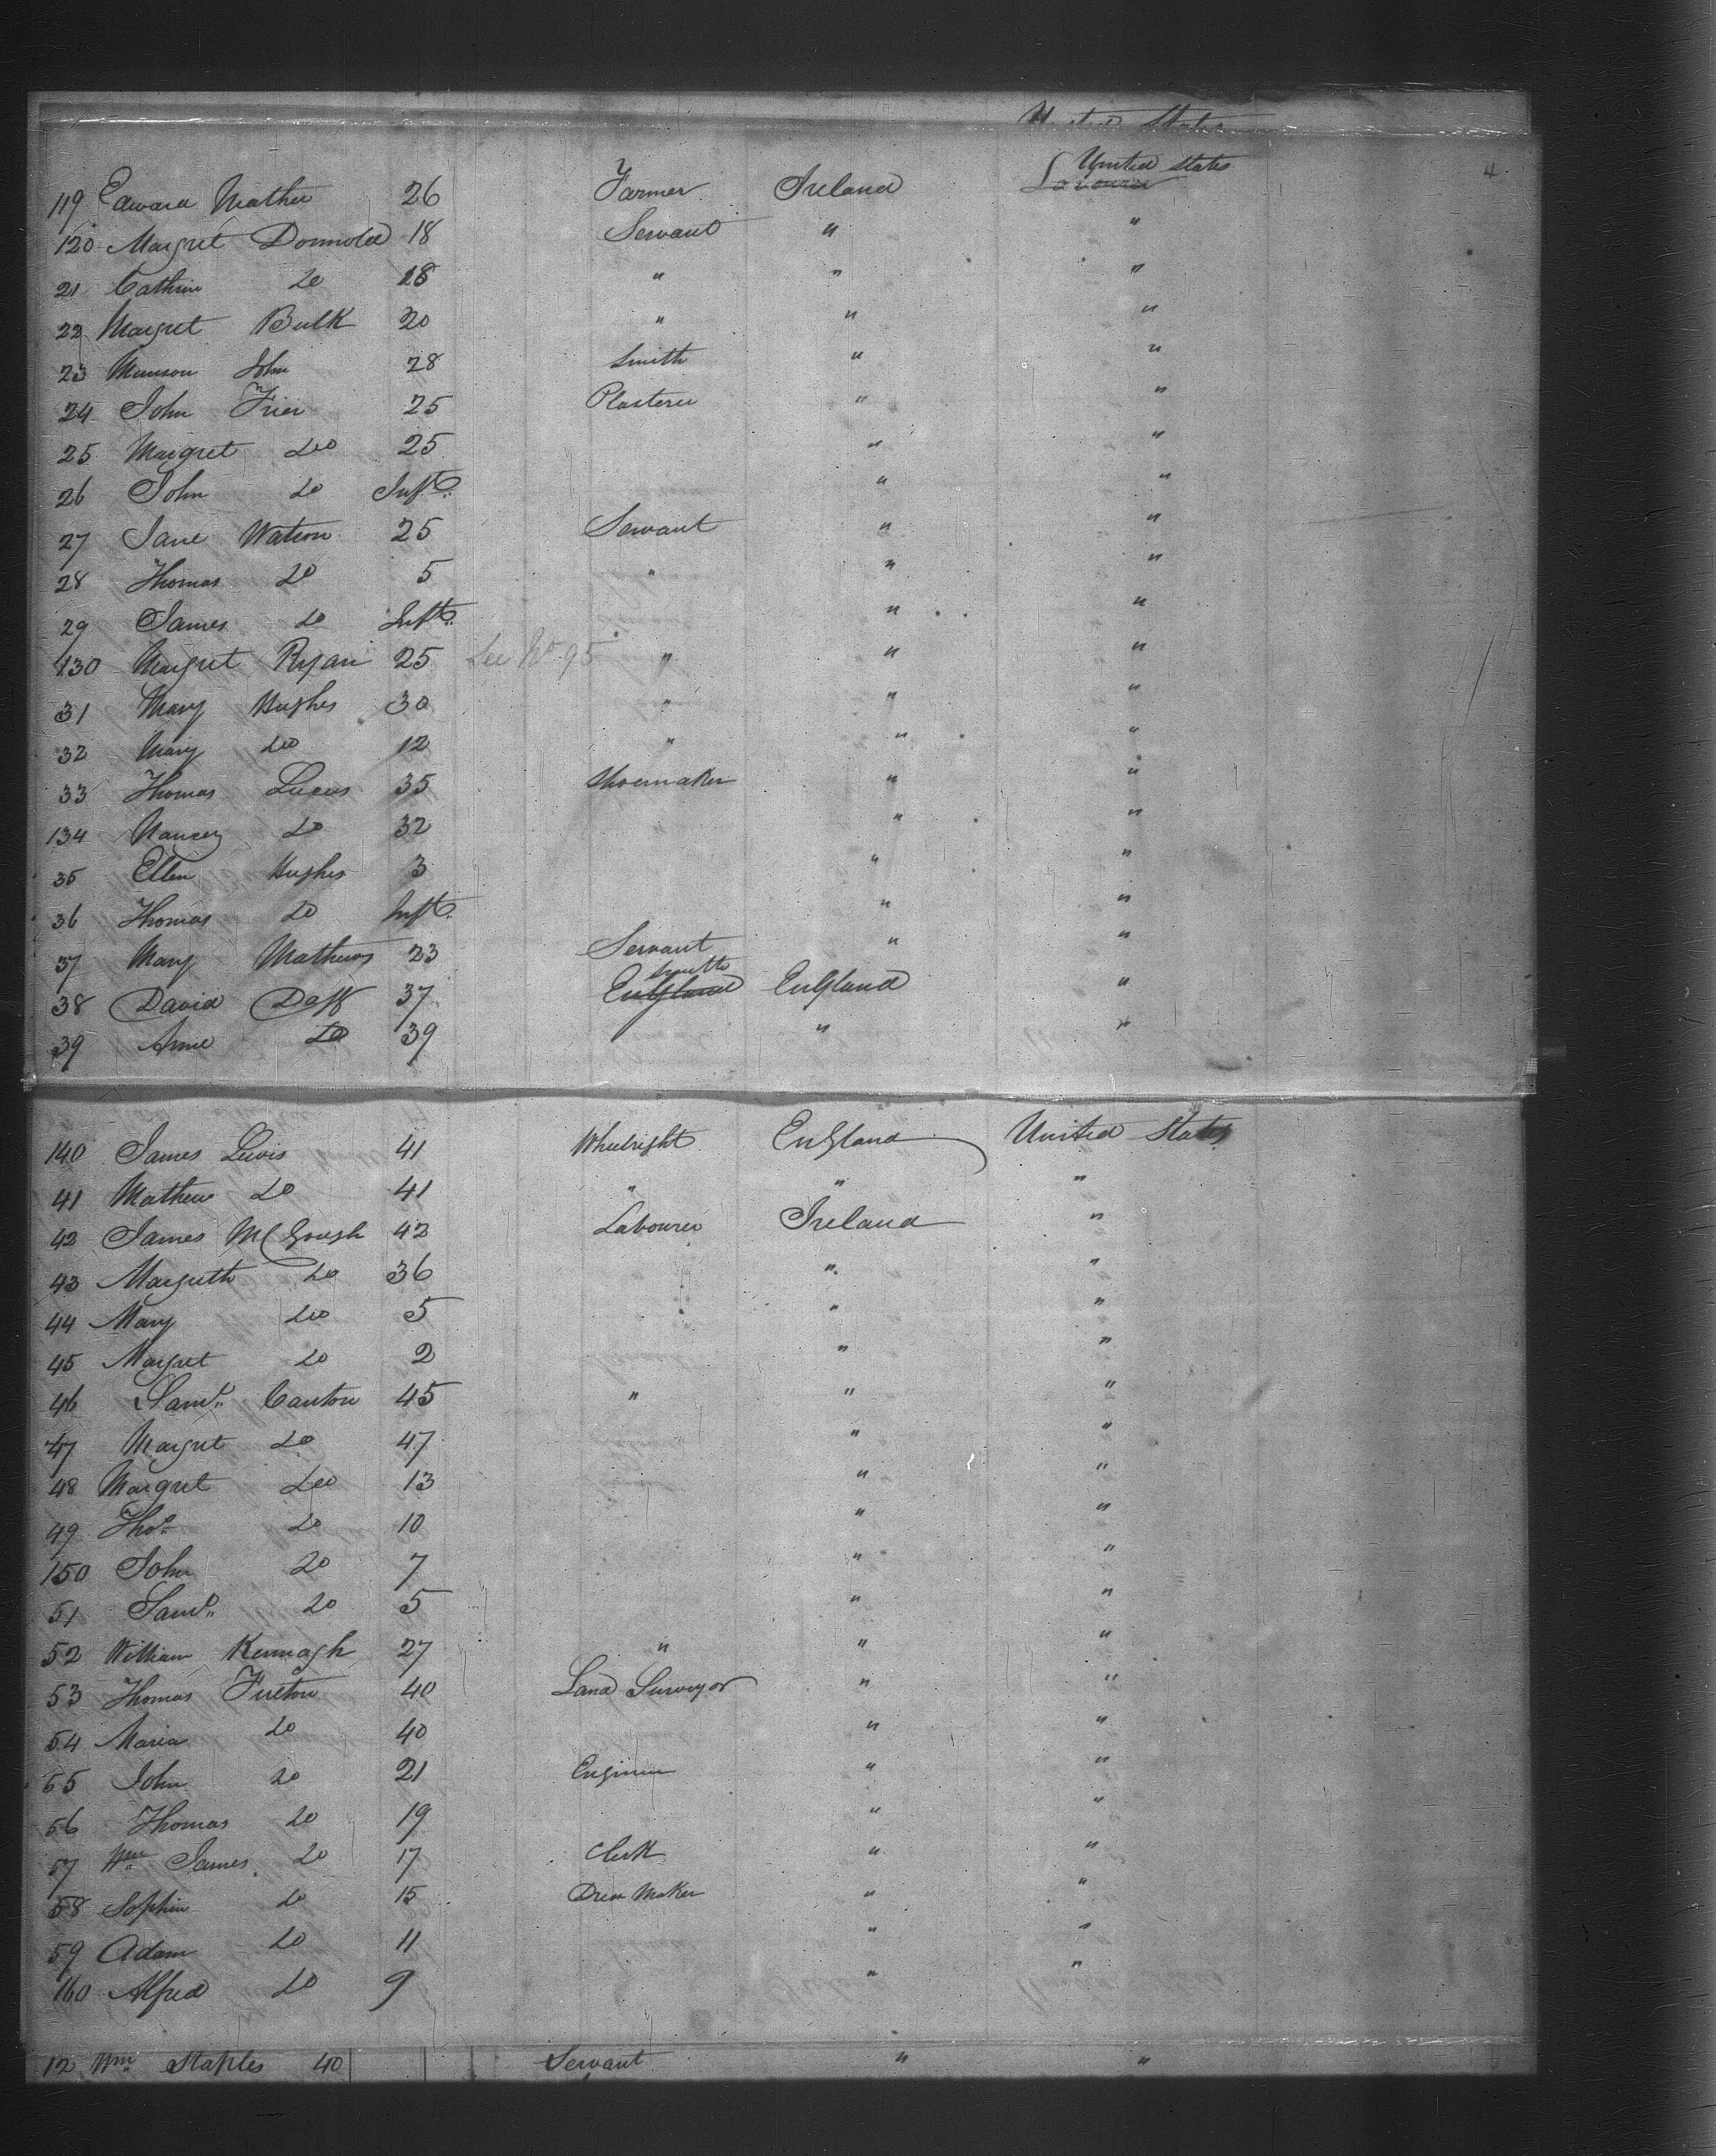 United States
4
119 Edward Mather 26 Farmer Ireland Labourer United States
120 Margret Donnoled 18 Servant " "
21 Cathrin Do 18 " " "
22 Margret Bulk 20 " " "
23 Munson John 28 Smith " "
24 John Frier 25 Plasterer " "
25 Margret Do 25 " "
26 John Do Inft. " "
27 Jane Watson 25 Servant " "
28 Thomas Do 5 " " "
29 James Do Inft. " "
130 Margret Ryan 25 See No 95 " " "
31 Mary Hughes 30 " " "
32 Mary Do 12 " " "
33 Thomas Lucus 35 Shoemaker " "
134 Nancy Do 32 " "
35 Ellen Hughes 3 " "
36 Thomas Do Inft. " "
37 Mary Mathews 23 Servant " "
38 David Daff 37 England Smith England "
39 Anne Do 39 " "
140 James Lewis 41 Wheelright England United States
41 Mathew Do 41 " " "
42 James McGough 42 Labourer Ireland "
43 Margreth Do 36 " "
44 Mary Do 5 " "
45 Margret Do 2 " "
46 Saml. Canton 45 " " "
47 Margret Do 47 " "
48 Margret Do 13 " "
49 Thos. Do 10 " "
150 John Do 7 " "
51 Saml. Do 5 " "
52 William Kennagh 27 " " "
53 Thomas Fureton 40 Land Surveyor " "
54 Maria Do 40 " "
55 John Do 21 Engineer " "
56 Thomas Do 19 " "
57 Wm James Do 17 Clerk " "
58 Sophia Do 15 Dress Maker " "
59 Adam Do 11 " "
160 Alfred Do 9 " "
12 Wm Staples 40 Servant " "